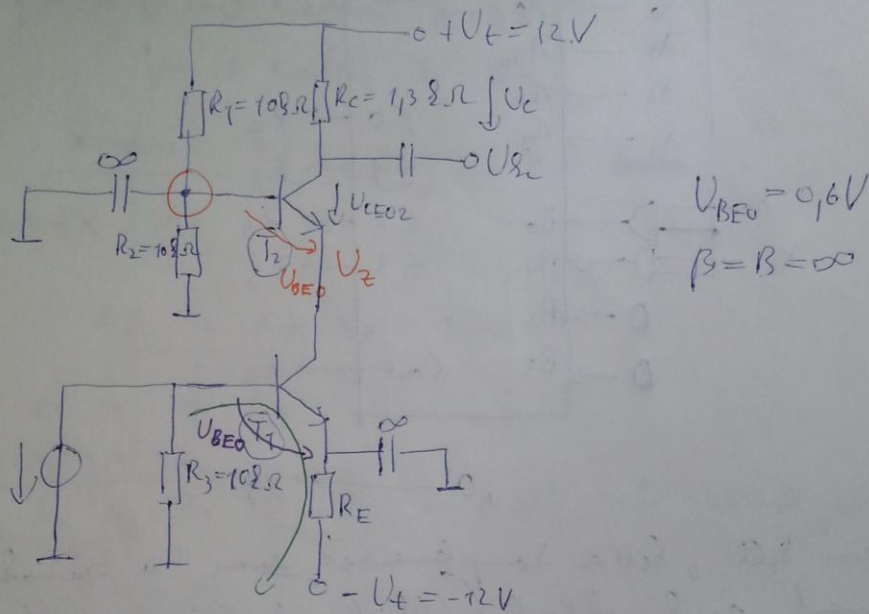 +Ut = 12V
R1 = 10kΩ
RC = 1,3kΩ
UC
∞
Uki
UCEO2
R2 = 10kΩ
T2
UBEO
UZ
UBEO = 0,6V
β = B = ∞
UBEO
T1
∞
R3 = 10kΩ
RE
-Ut = -12V